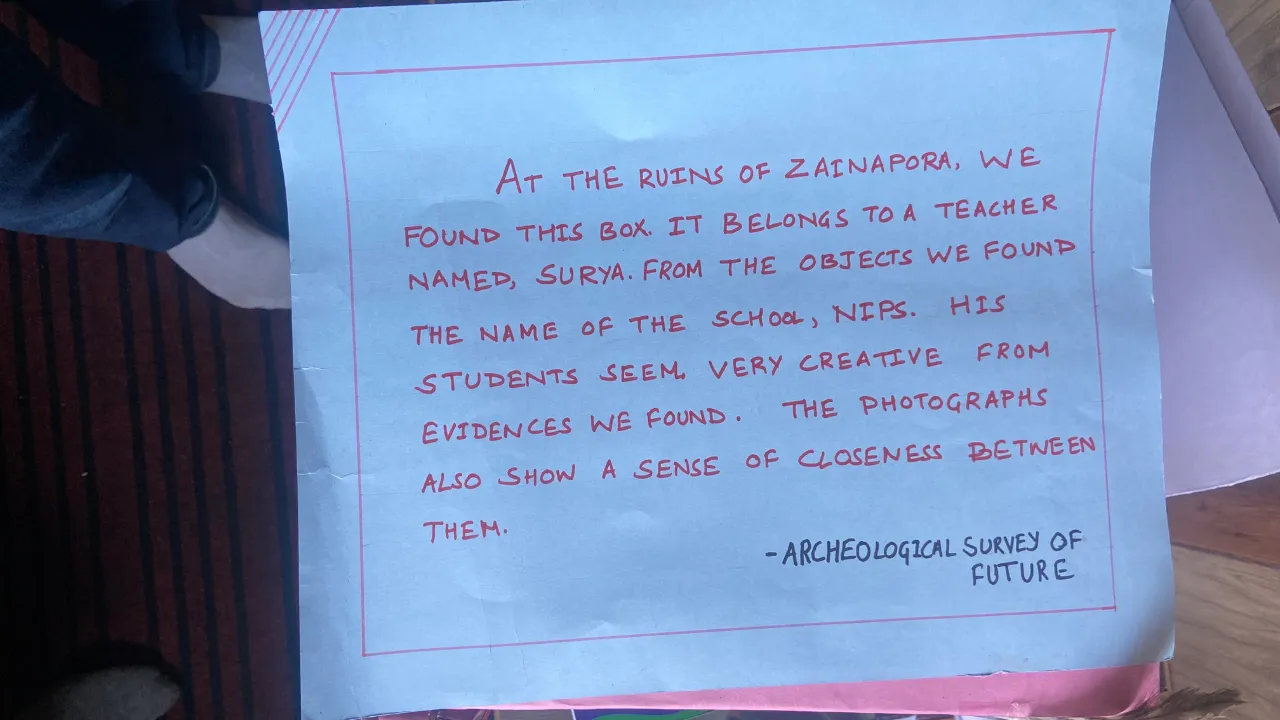 AT THE RUINS OF ZAINAPORA, WE
FOUND THIS BOX. IT BELONGS TO A TEACHER
NAMED, SURYA. FROM THE OBJECTS WE FOUND
THE NAME OF THE SCHOOL, NIPS. HIS
STUDENTS SEEM, VERY CREATIVE FROM
EVIDENCES WE FOUND. THE PHOTOGRAPHS
ALSO SHOW A SENSE OF CLOSENESS BETWEEN
THEM.
-ARCHEOLOGICAL SURVEY OF
FUTURE